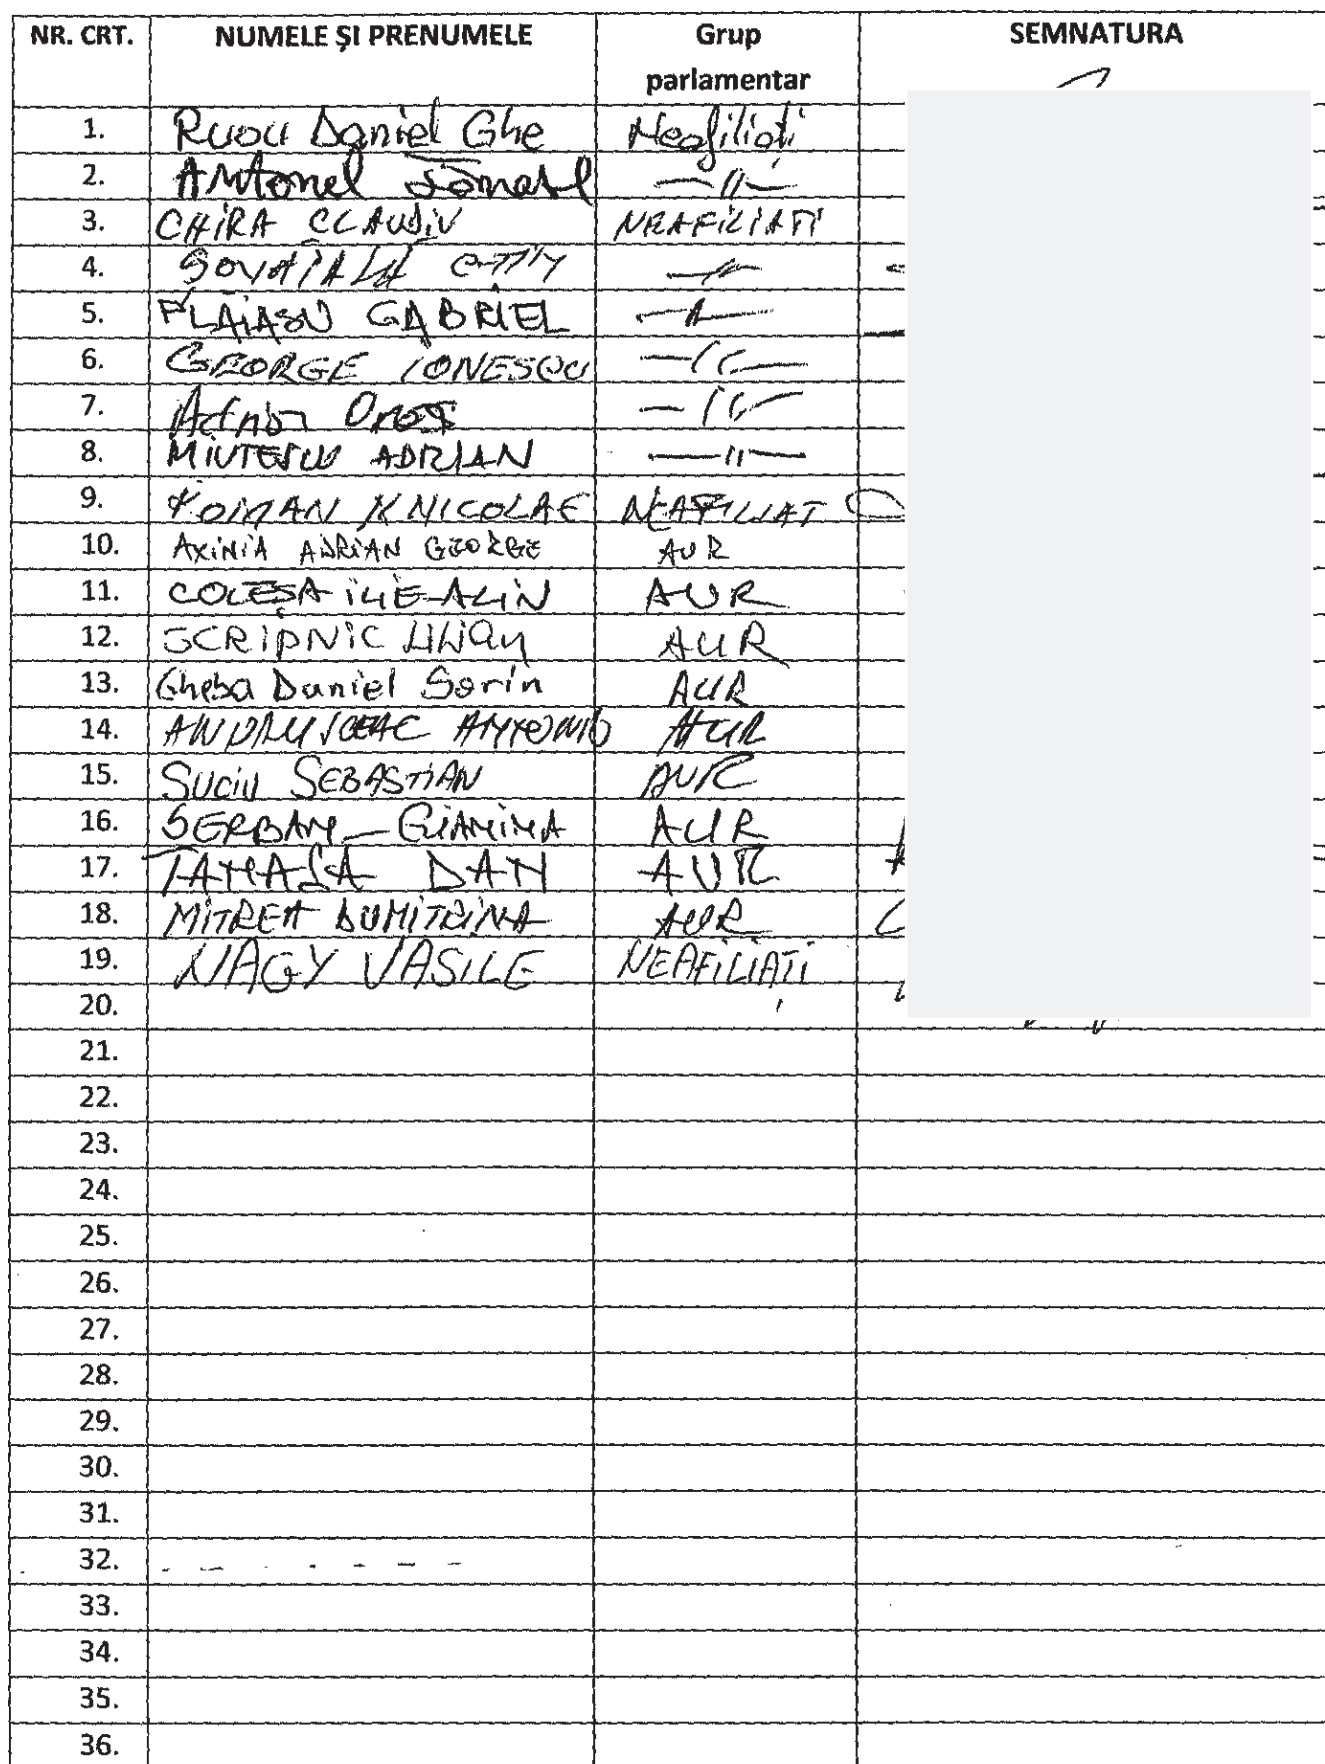 NR. CRT. NUMELE ȘI PRENUMELE Grup parlamentar SEMNATURA
1. Daniel Ghe Neafiliați
2. Antonel —"—
3. CHIRA CLAUDIU NEAFILIATI
4. —"—
5. PLĂIAȘU GABRIEL —"—
6. GEORGE IONESCU —"—
7. —"—
8. ADRIAN —"—
9. NICOLAE NEAFILIAT
10. AXINIA ADRIAN GEORGE AUR
11. COLEȘA ILIE-ALIN AUR
12. SCRIPNIC Lilian AUR
13. Gheba Daniel Sorin AUR
14. ANDRUSCEAC ANTONIO AUR
15. SUCIU SEBASTIAN AUR
16. SERBAN - GIANINA AUR
17. TANASĂ DAN AUR
18. MITREA DUMITRINA AUR
19. NAGY VASILE NEAFILIAȚI
20.
21.
22.
23.
24.
25.
26.
27.
28.
29.
30.
31.
32.
33.
34.
35.
36.